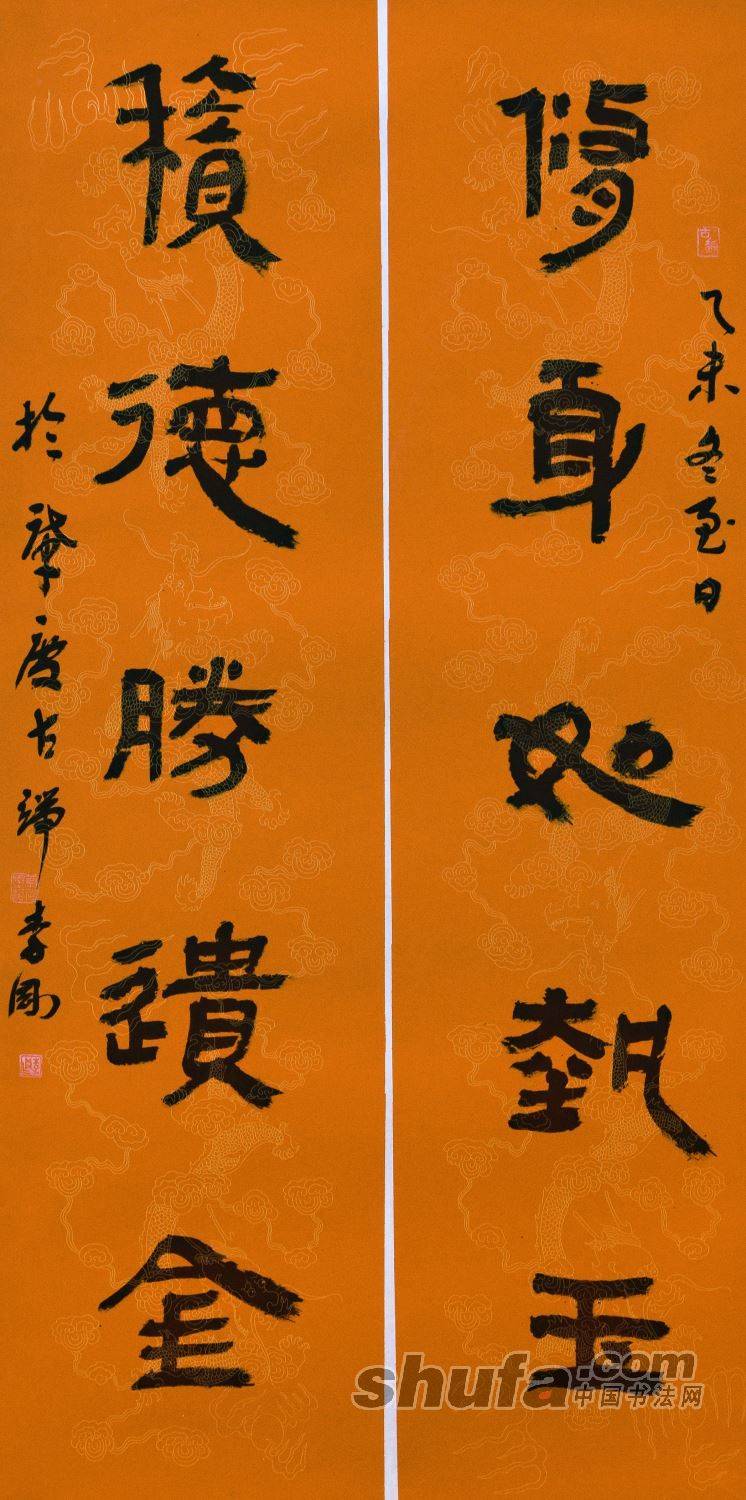 乙未冬至日
修身如執玉
積德勝遺金
於肇慶古端李剛
shufa.com
中国书法网